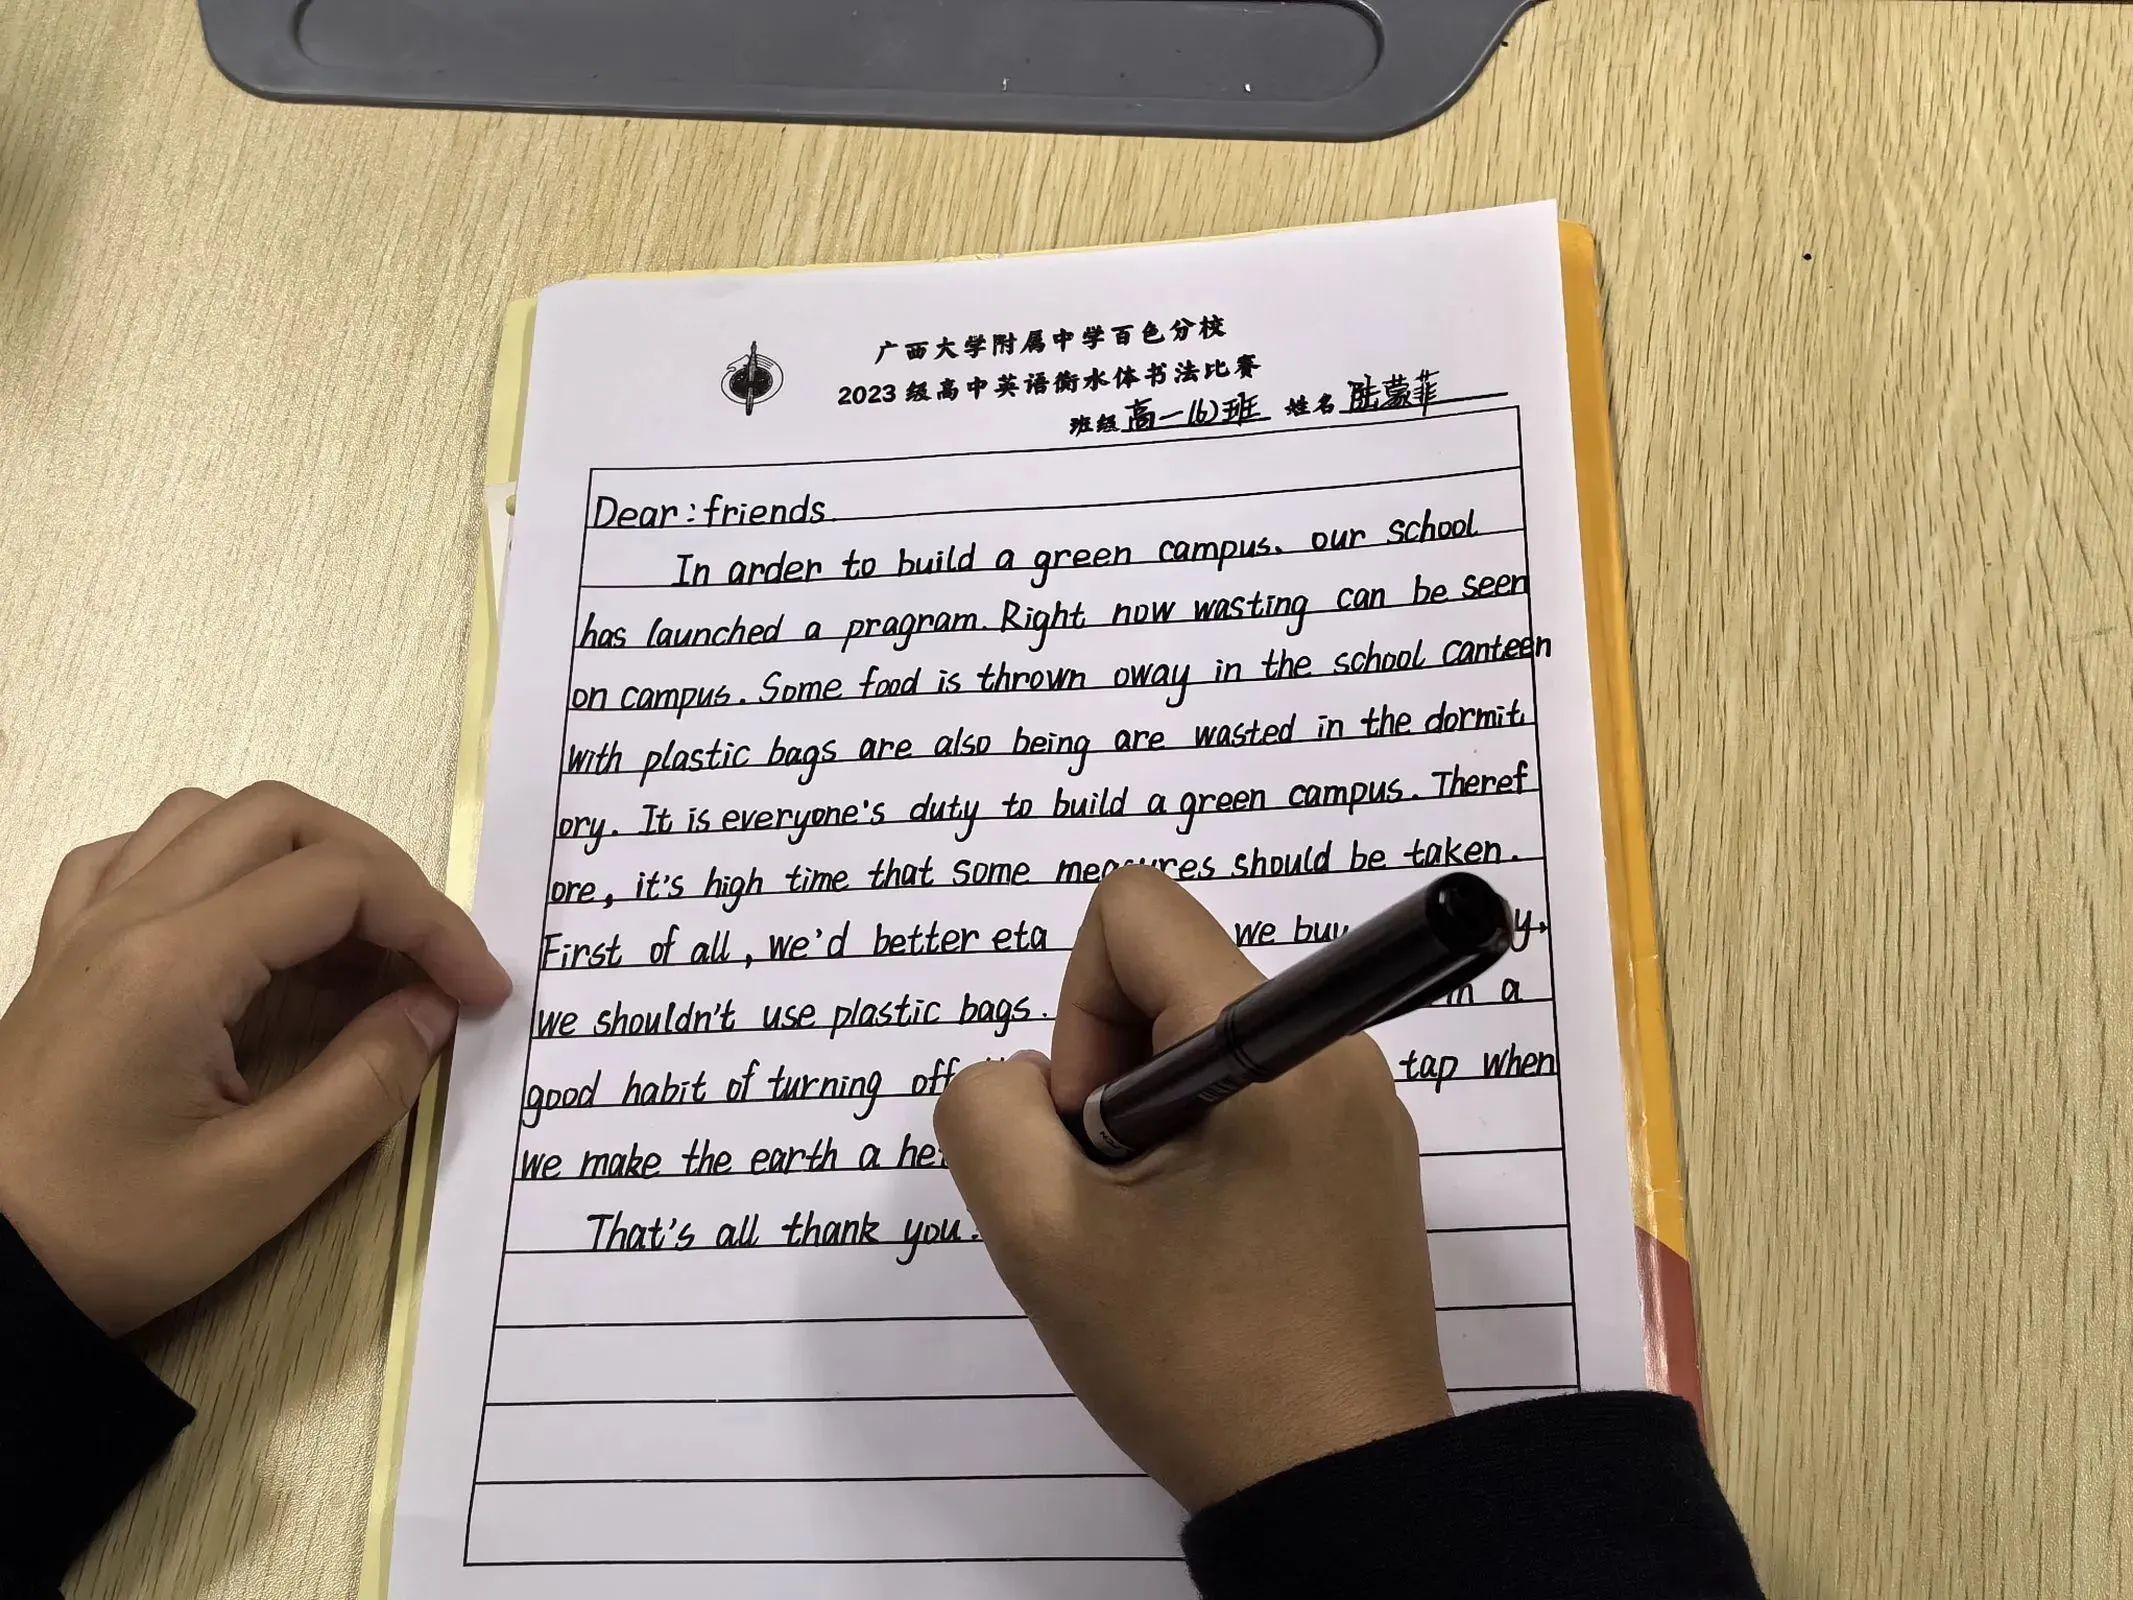 广西大学附属中学百色分校
2023级高中英语衡水体书法比赛
班级 高一(6)班 姓名 陆蒙菲
Dear:friends.
In arder to build a green campus, our school
has launched a pragram. Right now wasting can be seen
on campus. Some food is thrown oway in the school canteen
with plastic bags are also being are wasted in the dormit
ory. It is everyone's duty to build a green campus. Theref
ore, it's high time that some measures should be taken.
First of all, we'd better eta we buy
we shouldn't use plastic bags. a
good habit of turning off tap when
we make the earth a
That's all thank you.